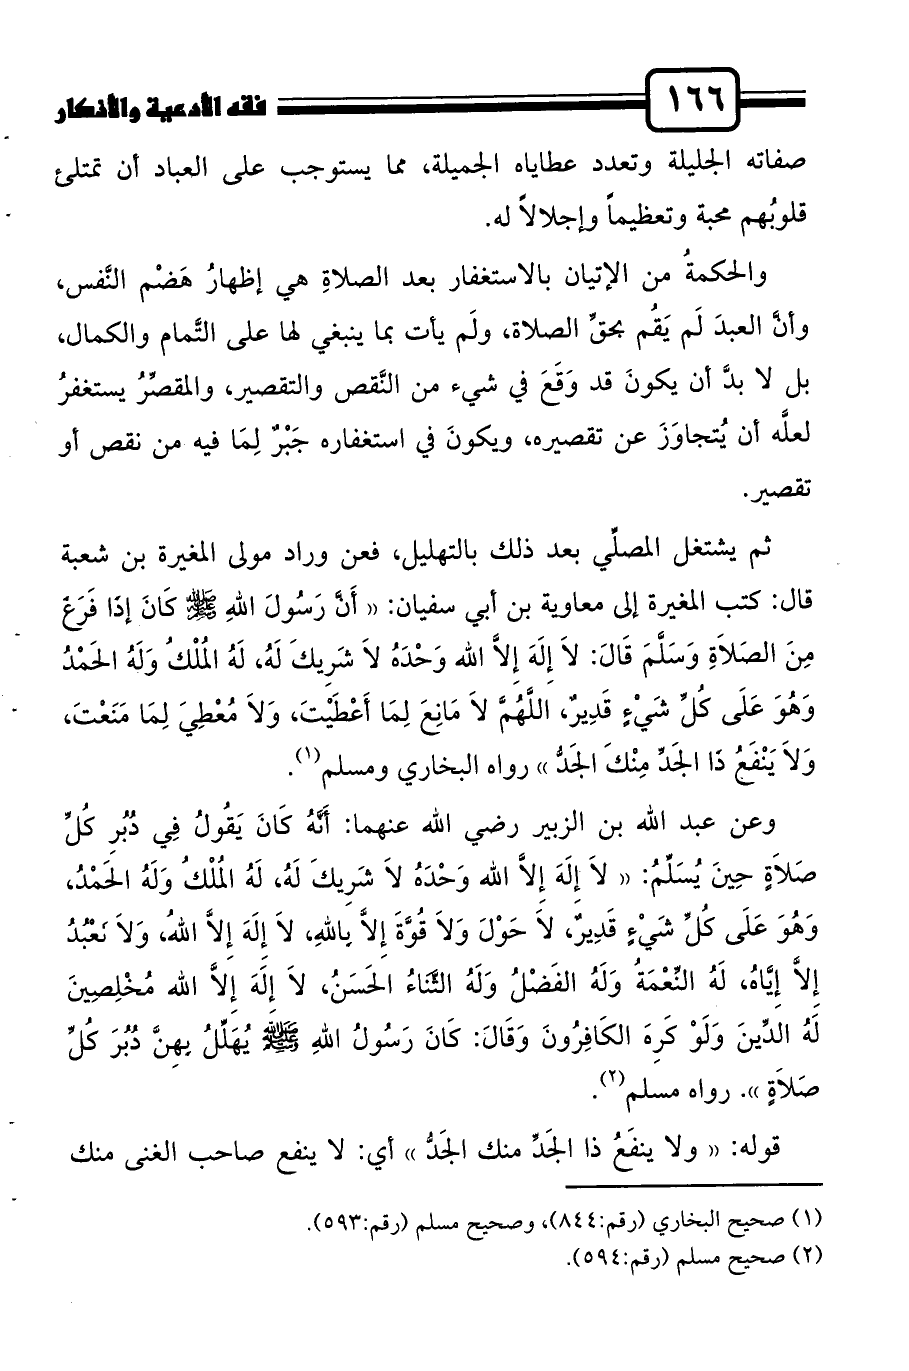 ١٦٦ فقه الأدعية والأذكار
صفاته الجليلة وتعدد عطاياه الجميلة، مما يستوجب على العباد أن تمتلئ
قلوبُهم محبة وتعظيماً وإجلالاً له.
والحكمةُ من الإتيان بالاستغفار بعد الصلاةِ هي إظهارُ هَضْم النَّفس،
وأنَّ العبدَ لَم يَقُم بحقِّ الصلاة، ولَم يأت بما ينبغي لها على التَّمام والكمال،
بل لا بدَّ أن يكونَ قد وَقَعَ في شيء من النَّقص والتقصير، والمقصِّرُ يستغفرُ
لعلَّه أن يُتجاوَزَ عن تقصيره، ويكونَ في استغفاره جَبْرٌ لِمَا فيه من نقص أو
تقصير.
ثم يشتغل المصلِّي بعد ذلك بالتهليل، فعن وراد مولى المغيرة بن شعبة
قال: كتب المغيرة إلى معاوية بن أبي سفيان: « أَنَّ رَسُولَ اللهِ ﷺ كَانَ إذَا فَرَغَ
مِنَ الصَلاَةِ وَسَلَّمَ قَالَ: لاَ إِلَهَ إِلاَّ الله وَحْدَهُ لاَ شَرِيكَ لَهُ، لَهُ المُلْكُ وَلَهُ الحَمْدُ
وَهُوَ عَلَى كُلِّ شَيْءٍ قَدِيرٌ، اللَّهُمَّ لاَ مَانِعَ لِمَا أَعْطَيْتَ، وَلاَ مُعْطِيَ لِمَا مَنَعْتَ،
وَلاَ يَنْفَعُ ذَا الجَدِّ مِنْكَ الجَدُّ » رواه البخاري ومسلم(١).
وعن عبد الله بن الزبير رضي الله عنهما: أَنَّهُ كَانَ يَقُولُ فِي دُبُرِ كُلِّ
صَلاَةٍ حِينَ يُسَلِّمُ: « لاَ إِلَهَ إِلاَّ الله وَحْدَهُ لاَ شَرِيكَ لَهُ، لَهُ المُلْكُ وَلَهُ الحَمْدُ،
وَهُوَ عَلَى كُلِّ شَيْءٍ قَدِيرٌ، لاَ حَوْلَ وَلاَ قُوَّةَ إِلاَّ بِاللهِ، لاَ إِلَهَ إِلاَّ اللهُ، وَلاَ نَعْبُدُ
إِلاَّ إِيَّاهُ، لَهُ النِّعْمَةُ وَلَهُ الفَضْلُ وَلَهُ الثَّنَاءُ الحَسَنُ، لاَ إِلَهَ إِلاَّ الله مُخْلِصِينَ
لَهُ الدِّينَ وَلَوْ كَرِهَ الكَافِرُونَ وَقَالَ: كَانَ رَسُولُ اللهِ ﷺ يُهَلِّلُ بِهِنَّ دُبُرَ كُلِّ
صَلاَةٍ ». رواه مسلم(٢).
قوله: « ولا ينفَعُ ذا الجَدِّ منك الجَدُّ » أي: لا ينفع صاحب الغنى منك
(١) صحيح البخاري (رقم:٨٤٤)، وصحيح مسلم (رقم:٥٩٣).
(٢) صحيح مسلم (رقم:٥٩٤).